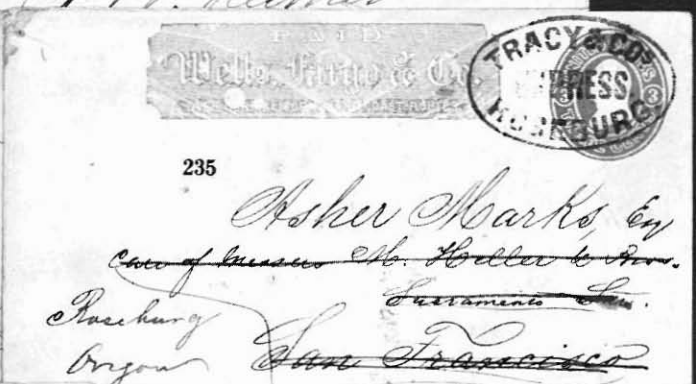 PAID
Wells, Fargo & Co.
TRACY & CO'S
EXPRESS
ROSEBURG.
3 3
235
Asher Marks, Esq
Care of Messrs M. Heller & Bros.
Sacramento St.
San Francisco
Roseburg
Oregon